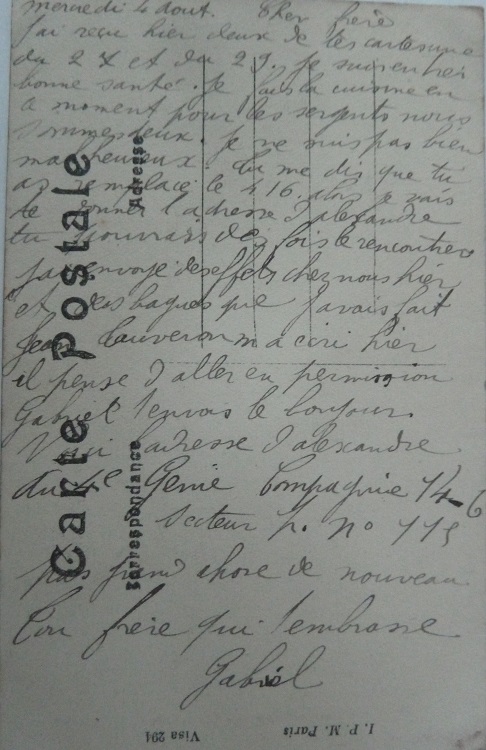 mercredi 4 aout. Cher frère
j'ai reçu hier deux de tes cartes une
du 27 et du 29. je suis en très
bonne santé. Je fais la cuisine en
ce moment pour les sergents nous
sommes deux. Je ne suis pas bien
malheureux. tu me dis que tu
as remplacé le 416. alors je vais
te donner l'adresse d'alexandre
tu pourrais des fois le rencontrer
j'ai envoyé des effets chez nous hier
et des bagues que j'avais fait
Jean m'a écri hier
il pense d'aller en permission
Gabriel t'envois le bonjour.
Voici l'adresse d'alexandre
du 4e Génie Compagnie 14-6
Secteur p. No 115
pas grand chose de nouveau
Ton frère qui t'embrasse
Gabriel
Carte Postale
Correspondance
Adresse
I. P. M. Paris
Visa 291